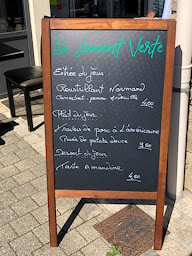 La Jument Verte
Entrée du jour
Croustillant Normand
Camembert, pomme
4,00
Plat du jour :
de porc à l'américaine
Purée de patate douce
9,60
Dessert du jour
Tarte Amandine
4,60